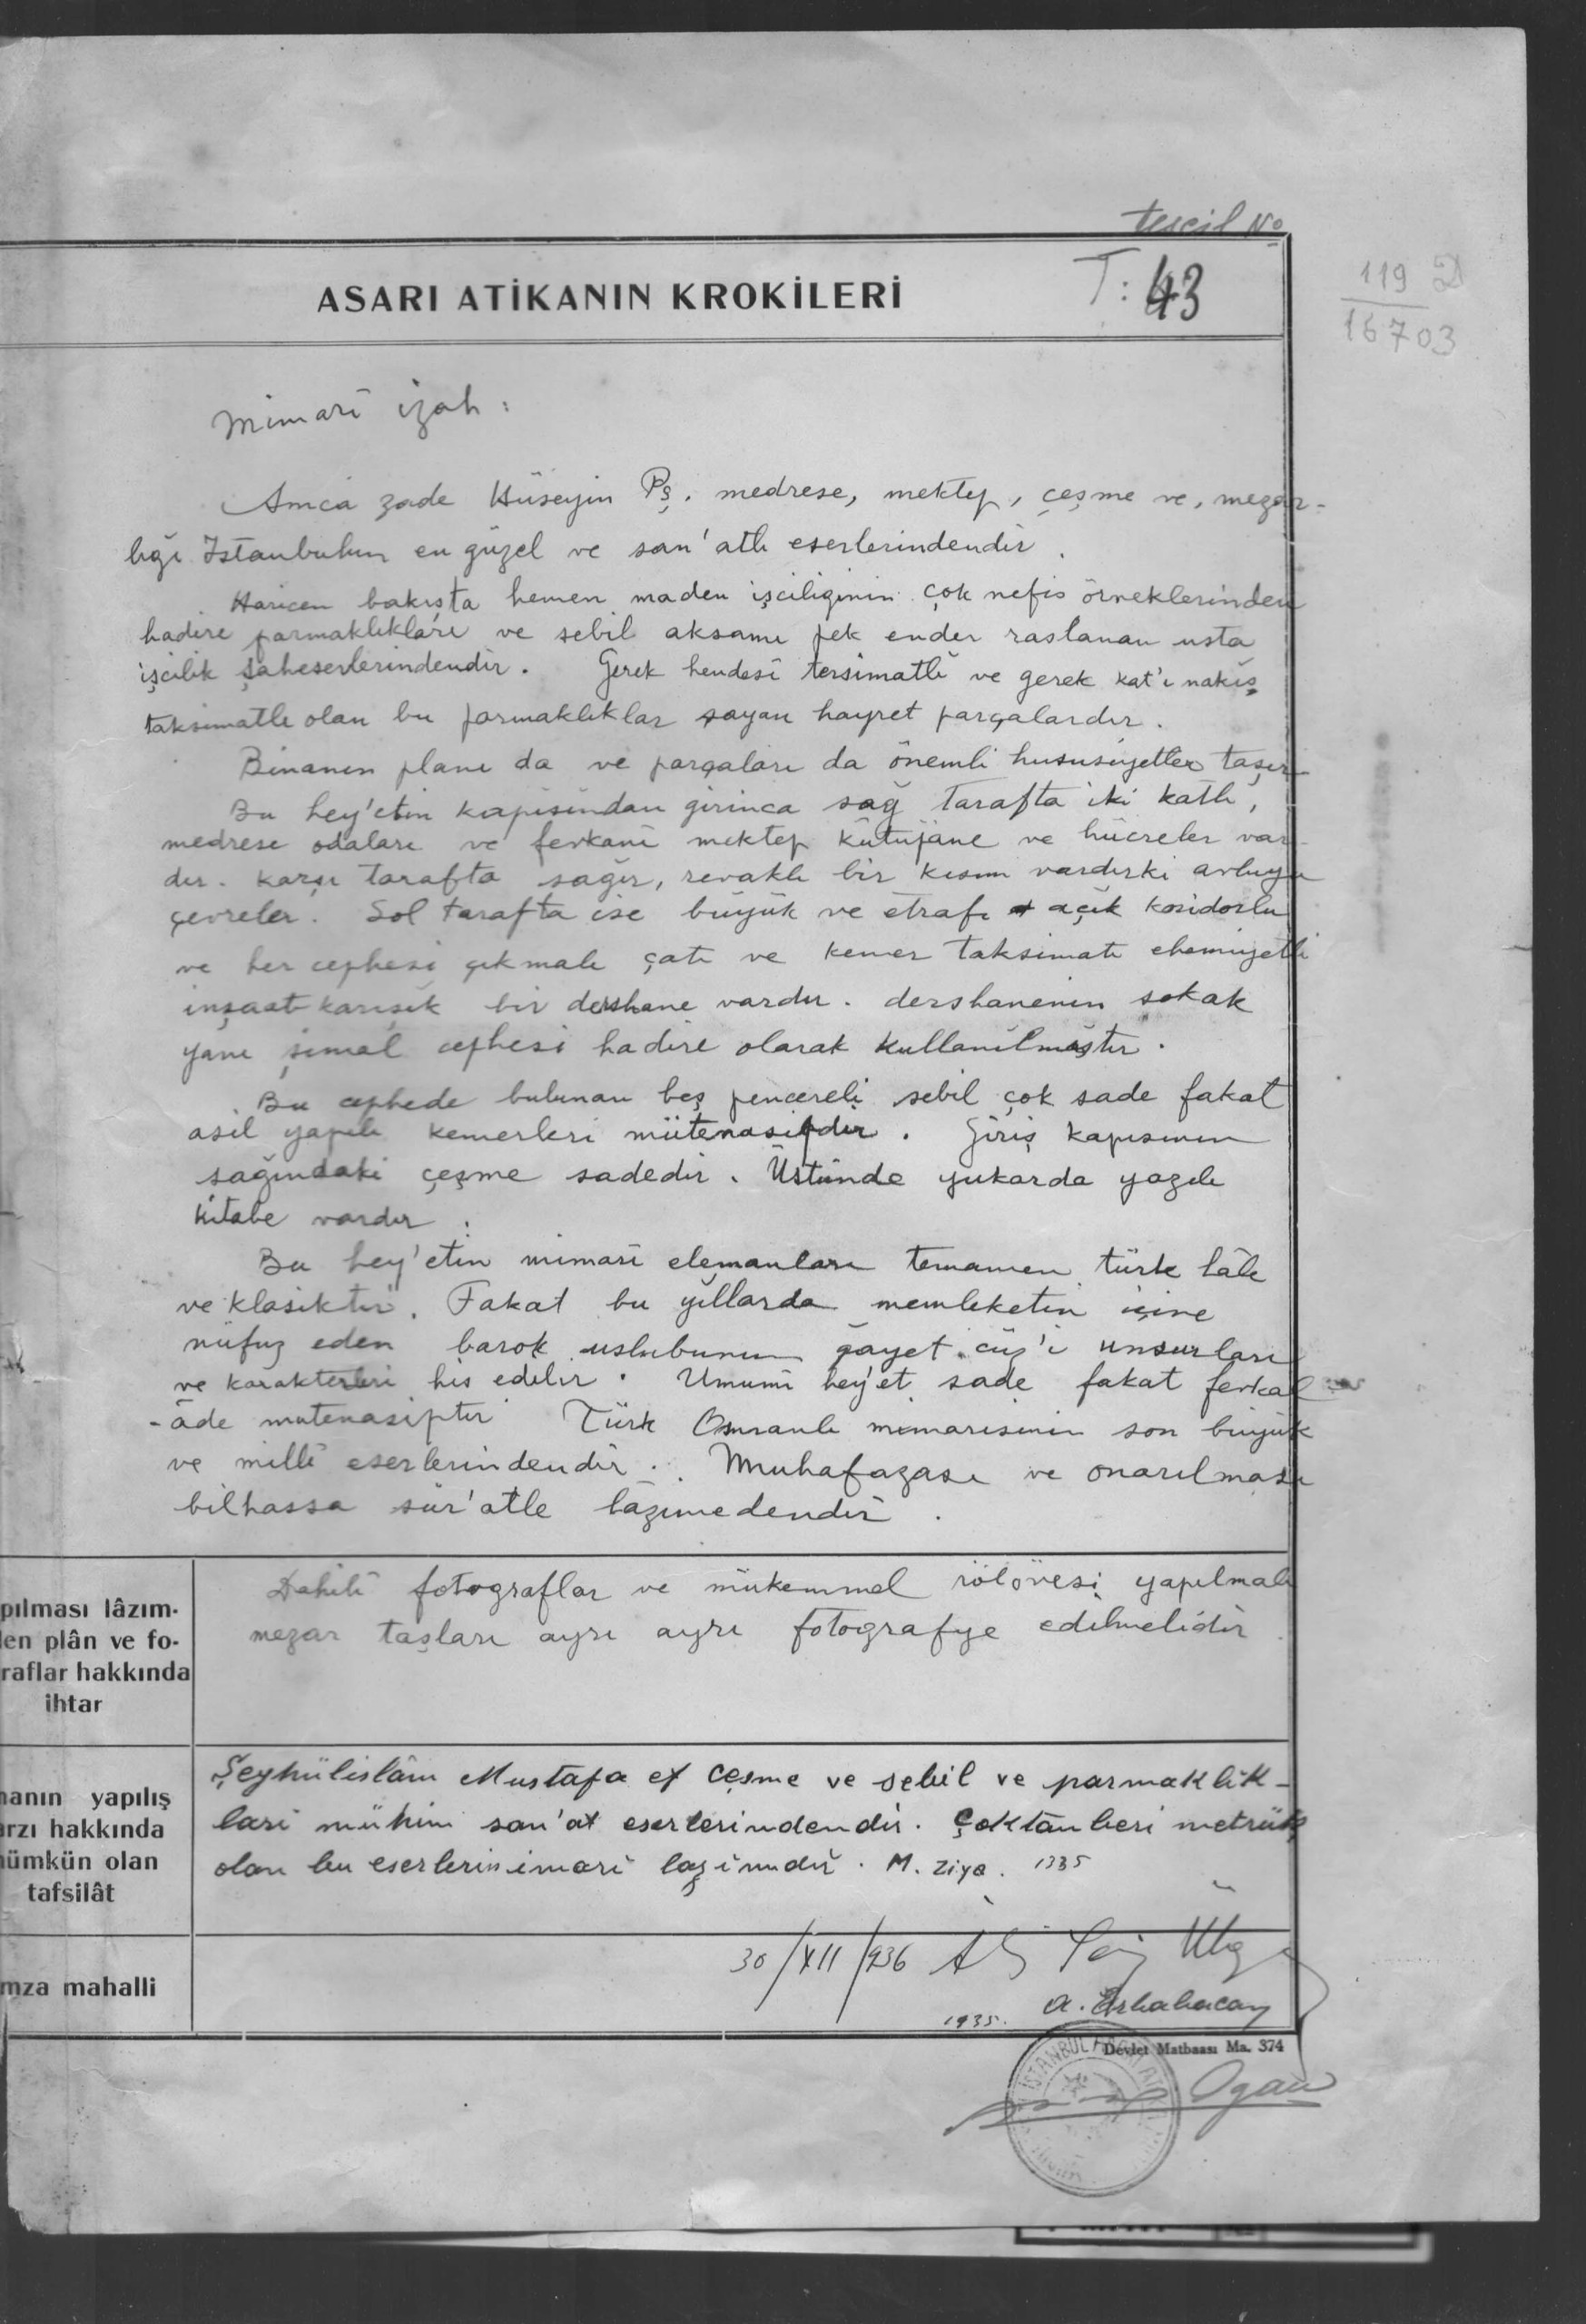 tescil No
ASARI ATİKANIN KROKİLERİ
T: 43
119 D
16703
Mimarî izah:
Amca zade Hüseyin Pş. medrese, mektep, çeşme ve, mezar-
lığı İstanbulun en güzel ve san'atlı eserlerindendir.
Haricen bakışta hemen maden işciliginin çok nefis örneklerinden
hadire parmaklıkları ve sebil aksamı pek ender raslanan usta
işcilik şaheserlerindendir. Gerek hendesî tersimatlı ve gerek kat'ı nakış
taksimatlı olan bu parmaklıklar şayanı hayret parçalardır.
Binanın planı da ve parçaları da önemli hususiyetler taşır
Bu hey'etin kapısından girinca sağ tarafta iki katlı,
medrese odaları ve fevkanî mektep kütüpane ve hücreler var-
dır. Karşı tarafta sağır, revaklı bir kısım vardırki avluyu
çevreler. Sol tarafta ise büyük ve etrafı açık koridorlu
ve her cephesi çıkmalı çatı ve kemer taksimatı ehemiyetli
inşaat karışık bir dershane vardır. dershanenin sokak
yanı şimal cephesi hadire olarak kullanılmıştır.
Bu cephede bulunan beş pencereli sebil çok sade fakat
asil yapılı kemerleri mütenasipdir. Giriş kapısının
sağındaki çeşme sadedir. Üstünde yukarda yazılı
kitabe vardır.
Bu hey'etin mimarî elemanları tamamen türk lâle
ve klasiktir. Fakat bu yıllarda memleketin içine
nüfuz eden barok uslubunun gayet cüz'i unsurları
ve karakterleri his edilir. Umumî hey'et sade fakat fevkal
-âde mutenasiptir Türk Osmanlı mimarisinin son büyük
ve millî eserlerindendir. Muhafazası ve onarılması
bilhassa sür'atle lâzımedendir.
pılması lâzım-
len plân ve fo-
raflar hakkında
ihtar
Dahilî fotograflar ve mükemmel rölövesi yapılmalı
mezar taşları ayrı ayrı fotografye edilmelidir.
nanın yapılış
arzı hakkında
nümkün olan
tafsilât
Şeyhülislâm Mustafa ef çeşme ve sebil ve parmaklık-
ları mühim san'at eserlerindendir. Çoktanberi metrük
olan bu eserlerin imarî lazımdır. M. Ziya. 1335
mza mahalli
30/XII/936
1935.
Devlet Matbaası Ma. 374
İSTANBUL
Ogan